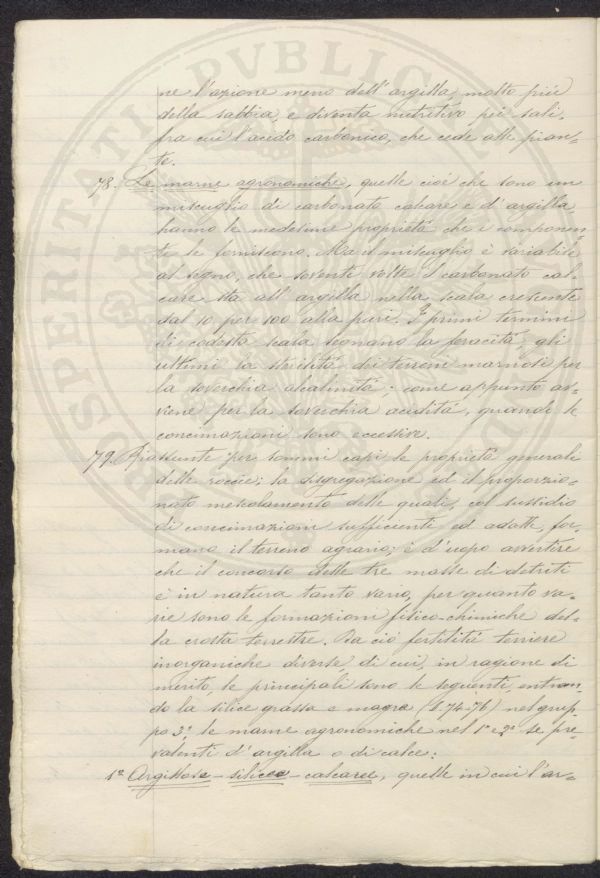 ne l'azione meno dell'argilla, molto più
della sabbia, e diventa nutritivo pei sali,
fra cui l'acido carbonico, che cede alle pian-
te.
78. Le marne agronomiche, quelle cioè che sono un
miscuglio di carbonato calcare e d'argilla,
hanno le medesime proprietà che i componen-
ti le forniscono. Ma il miscuglio è variabile
al segno, che sovente volte il carbonato cal-
care sta all'argilla nella scala crescente
dal 10 per 100 alla pari. I primi termini
di codesta scala segnano la feracità, gli
ultimi la sterilità dei terreni marnosi per
la soverchia alcalinità; come appunto av-
viene per la soverchia acidità, quando le
concimazioni sono eccessive.
79. Riassunte per sommi capi le proprietà generali
delle roccie; la disgregazione ed il proporzio-
nato mescolamento delle quali, col sussidio
di concimazioni sufficienti ed adatte, for-
mano il terreno agrario; è d'uopo avvertire
che il concorso delle tre masse di detriti
è in natura tanto vario, per quanto va-
rie sono le formazioni fisico-chimiche del-
la crosta terrestre. Da ciò fertilità terriere
inorganiche diverse, di cui, in ragione di
merito, le principali sono le seguenti, entran-
do la silice grassa e magra (§ 74-76) nel grup-
po 3º le marne agronomiche nel 1º e 2º se pre-
valenti d'argilla o di calce:
1º Argillose-silicee-calcaree, quelle in cui l'ar-
PROSPERITATI PVBLICAE